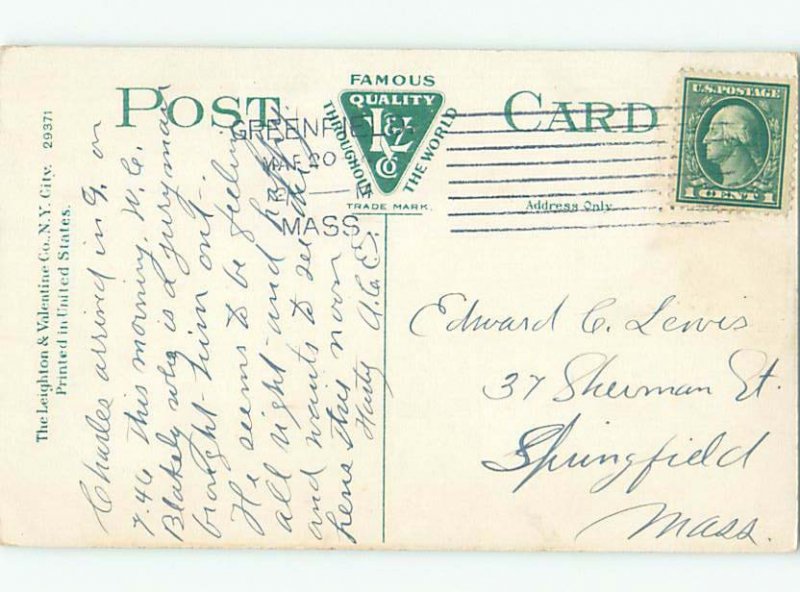 The Leighton & Valentine Co., N.Y. City. 29371
Printed in United States.
POST CARD
FAMOUS
QUALITY
THROUGHOUT
THE WORLD
L&V
Co
TRADE MARK.
Address Only.
U.S. POSTAGE
1 CENT 1
GREENFIELD
MAR 20
MASS.
Charles arrived in G. on
7.46 this morning. W. C.
Blakely who is a jury man
brought him out.
He seems to be feeling
all right and happy
and wants to see
here this noon
Hasty A.C.E.
Edward C. Lewis
37 Sherman St.
Springfield
Mass.